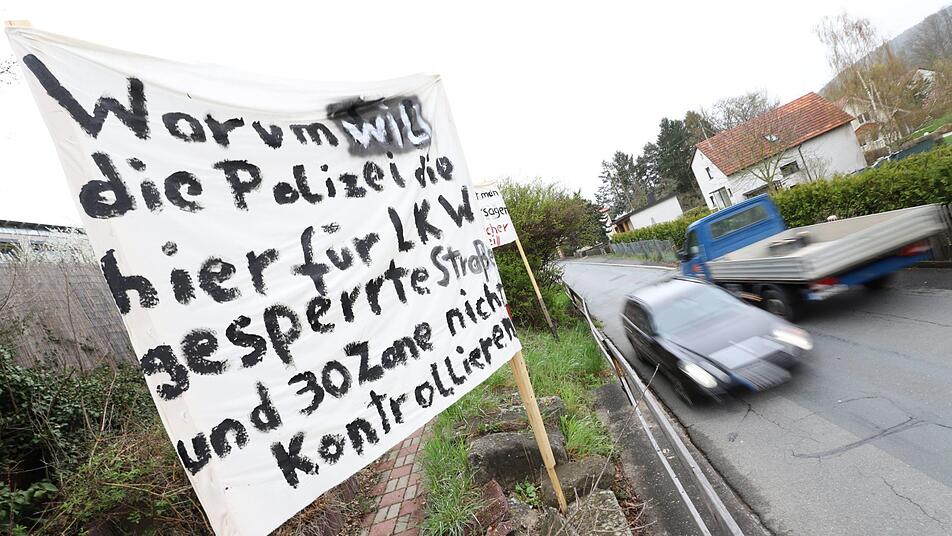 Worum will
die Polizei die
hier für LKW
gesperrte Straße
und 30 Zone nicht
Kontrollieren